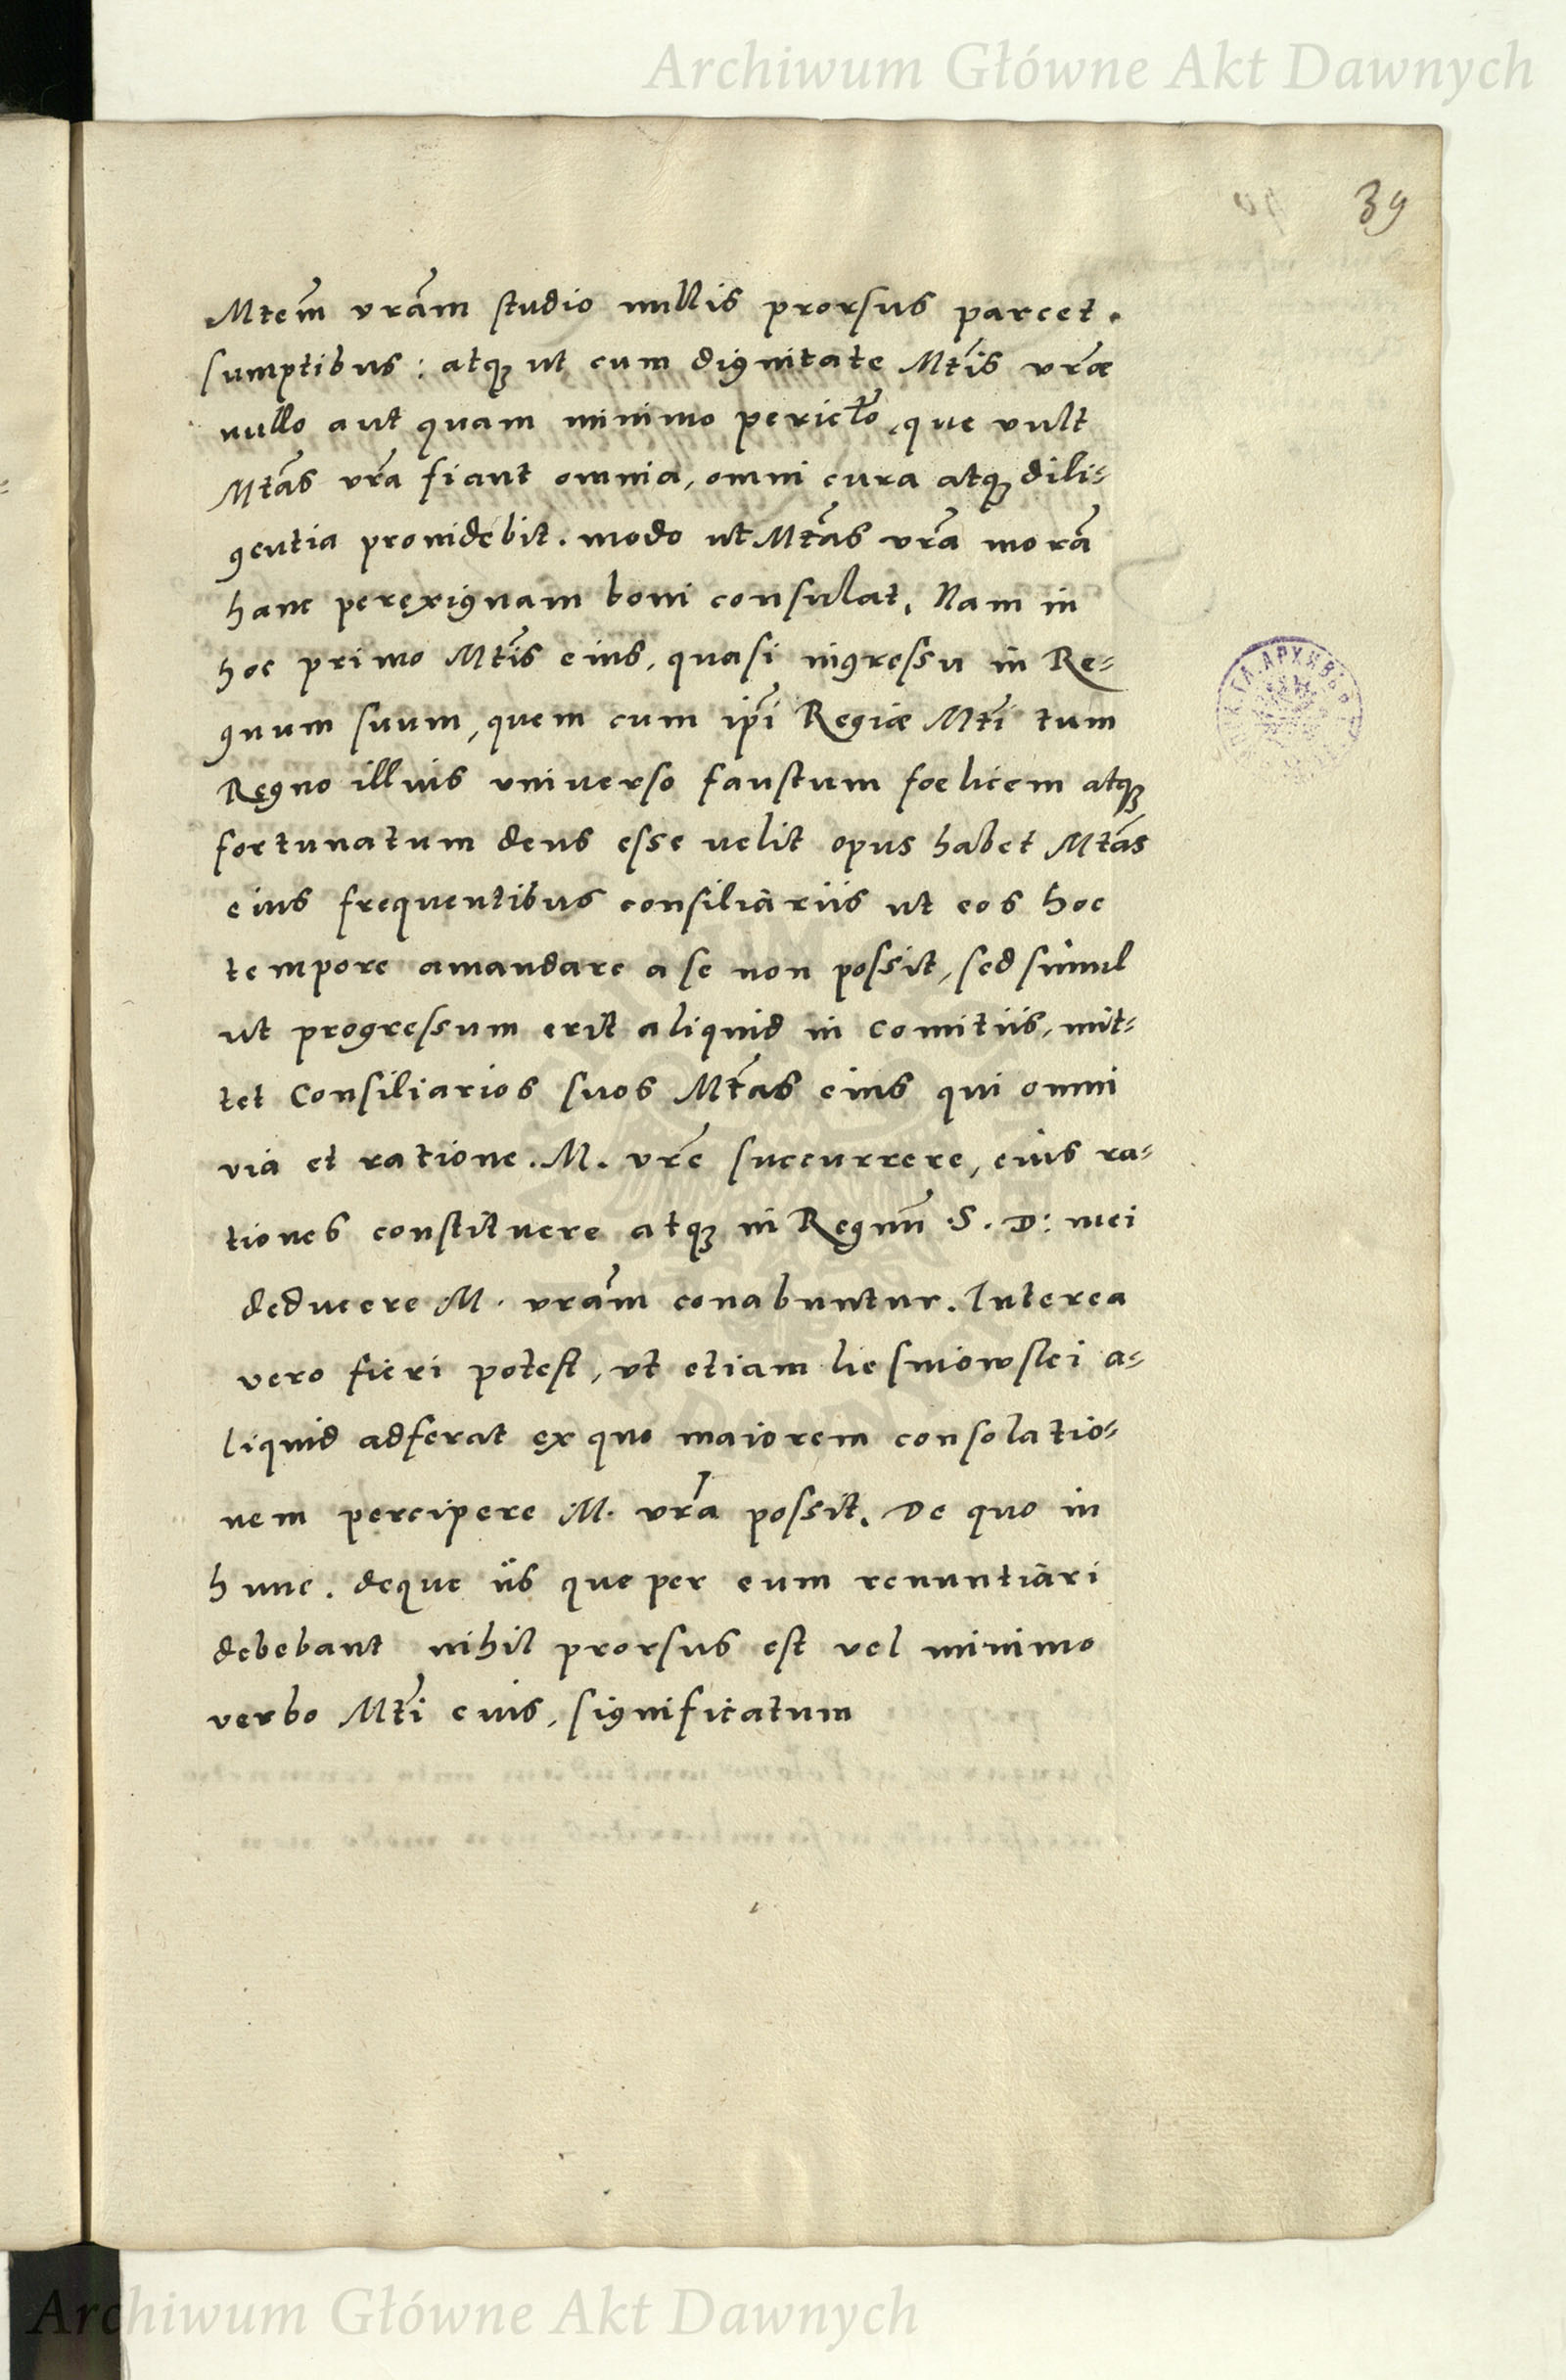 Archiwum Główne Akt Dawnych
39
Mtem̃ vrãm studio nullis prorsus parcet.
sumptibus: atq̃ ut cum dignitate Mtĩs vrãe
nullo aut quam minimo pericl̃o, que vult
Mtãs vrã fiant omnia, omni cura atq̃ dili=
gentia prouidebit. modo ut Mtãs vrã morã
hanc perexiguam boni consulat. Nam in
hoc primo Mtĩs eius, quasi ingressu in Re=
gnum suum, quem cum ip̃i Regiæ Mtĩ tum
Regno illius vniverso faustum foelicem atq̃
fortunatum deus esse uelit opus habet Mtãs
eius frequentibus consiliàriis ut eos hoc
tempore amandare a se non possit, sed simul
ut progressum erit aliquid in comitiis, mit=
tet Consiliarios suos Mtãs eius qui omni
via et ratione. M. vrẽ succurrere, eius ra=
tiones constituere atq̃ in Regnũ S. D: mei
deducere M. vrãm conabuntur. Interea
vero fieri potest, vt etiam liesniowslei a=
liquid adferat ex quo maiorem consolatio=
nem percipere M. vrã possit. De quo in
hunc. deque iis que per eum renuntiàri
debebant nihil prorsus est vel minimo
verbo Mtĩ eius, significatum
Archiwum Główne Akt Dawnych